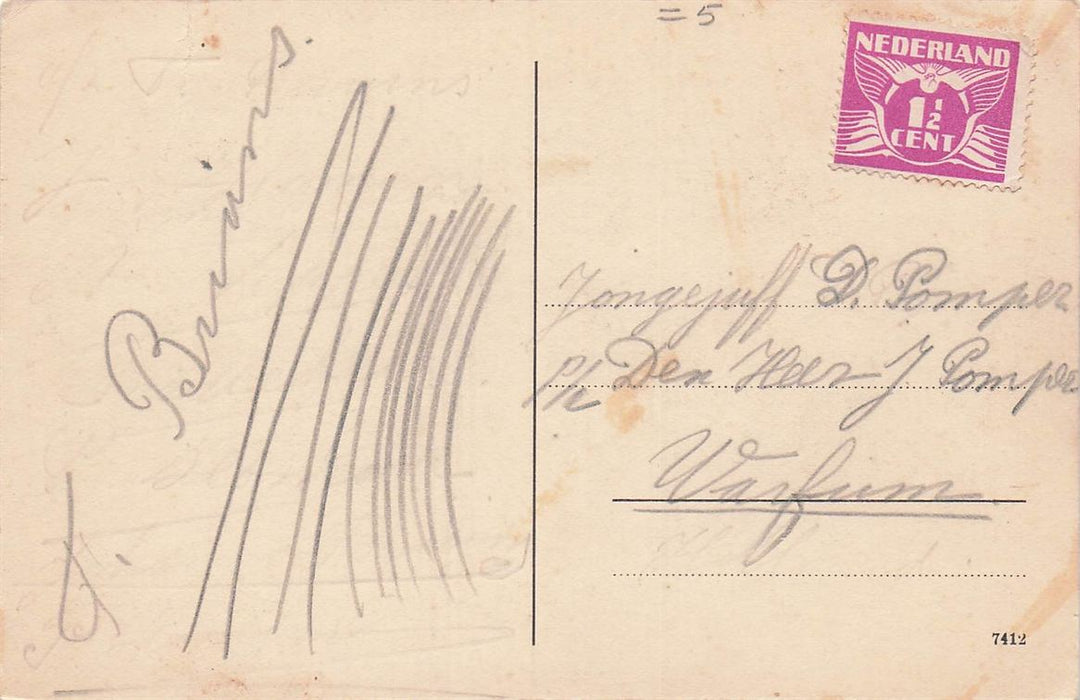 = 5
NEDERLAND
1½
CENT
Jongejuff D. Pomper
p/a Den Heer J Pomper
Warfum
T. Bruins.
7412